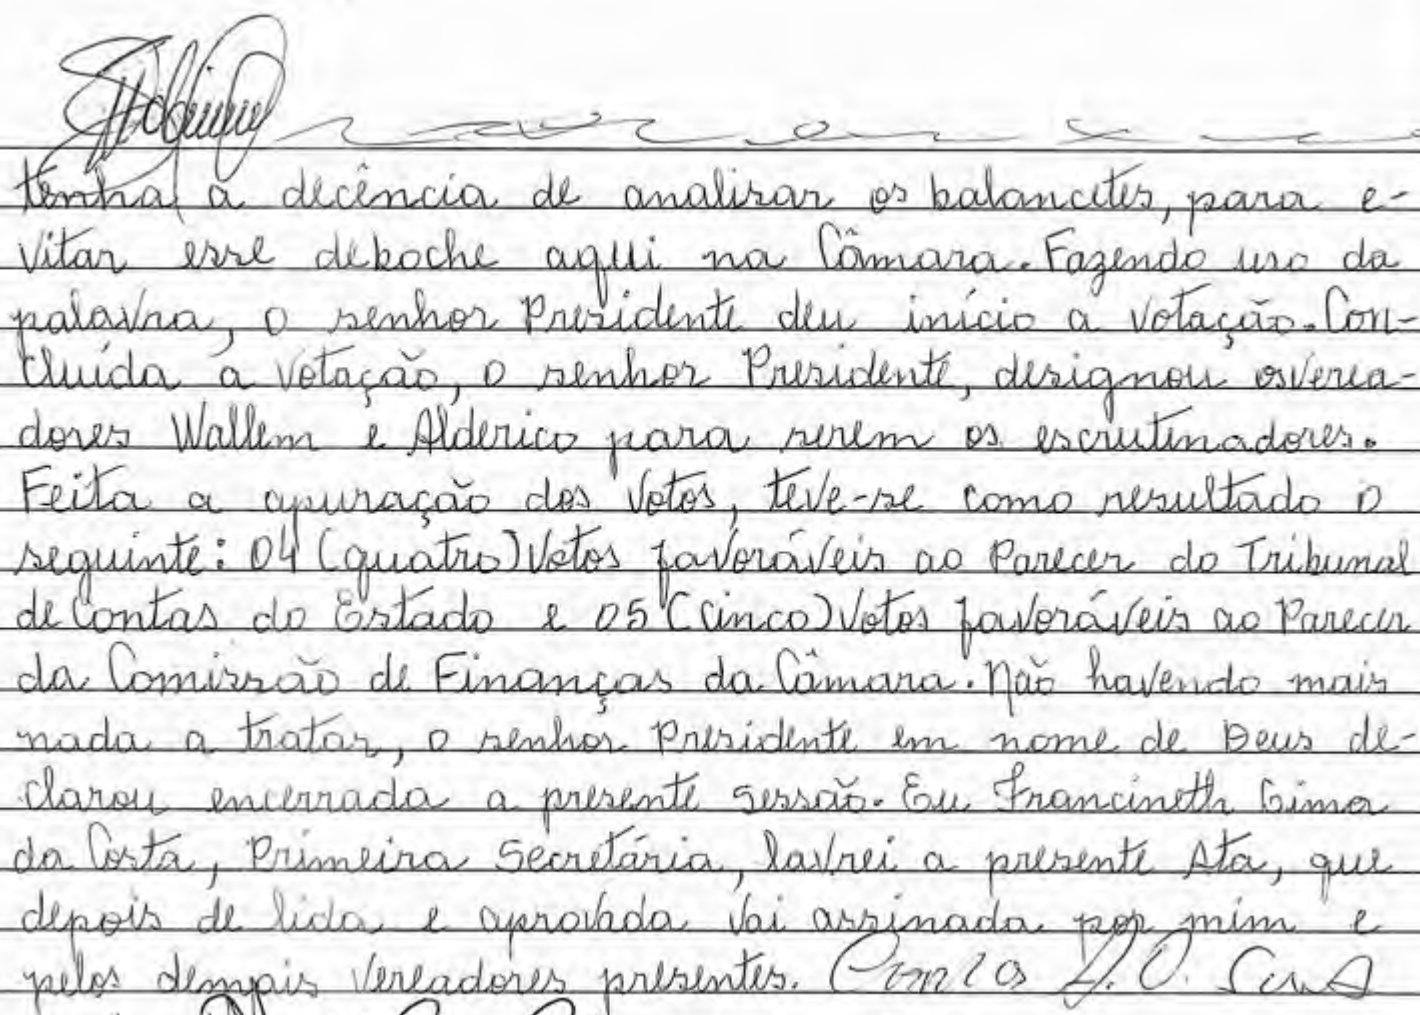 tenha a decência de analisar os balancetes, para e-
vitar esse deboche aqui na Câmara. Fazendo uso da
palavra, o senhor Presidente deu início a votação. Con-
cluída a votação, o senhor Presidente, designou os verea-
dores Wallem e Alderico para serem os escrutinadores.
Feita a apuração dos votos, teve-se como resultado o
seguinte: 04 (quatro) votos favoráveis ao Parecer do Tribunal
de Contas do Estado e 05 (cinco) votos favoráveis ao Parecer
da Comissão de Finanças da Câmara. Não havendo mais
nada a tratar, o senhor Presidente em nome de Deus de-
clarou encerrada a presente sessão. Eu Francineth
da Costa, Primeira Secretária, lavrei a presente Ata, que
depois de lida e aprovada vai assinada por mim e
pelos demais vereadores presentes.